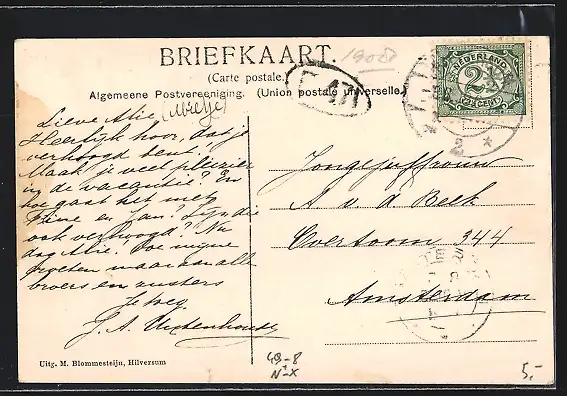 BRIEFKAART.
(Carte postale.)
Algemeene Postvereeniging. (Union postale universelle.)
1908
NEDERLAND
2½
2½ CENT
Lieve Alie,
Heerlijk hoor, dat je
verhoogd bent!
Maak je veel plezier
in de vacantie? En
hoe gaat het met
Tine en Jan? Zijn die
ook verhoogd? Nu
dag Alie! Doe mijne
groeten maar aan alle
broers en zusters
Je toeg.
J. A.
Jongejuffrouw
A v. d. Beek
Overtoom 344
Amsterdam
Uitg. M. Blommesteijn, Hilversum
49-8
N-X
5,-